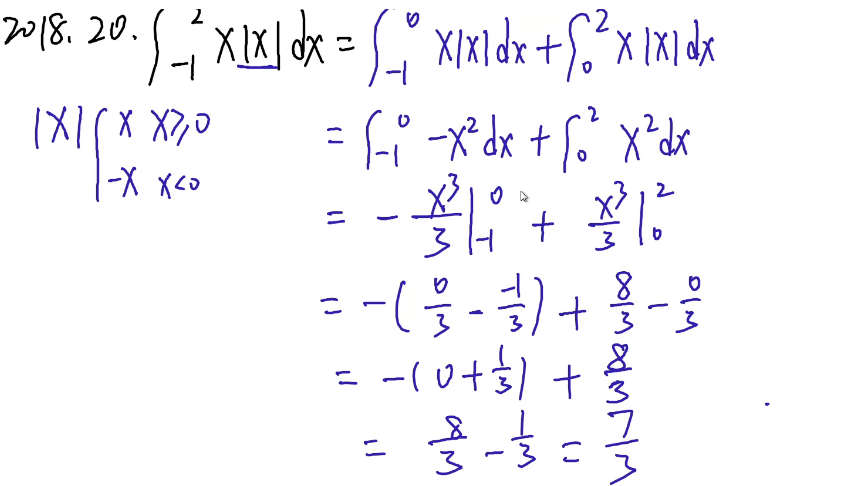 2018. 20. ∫_{-1}^{2} x|x| dx = ∫_{-1}^{0} x|x| dx + ∫_{0}^{2} x|x| dx
|x| { x x≥0 = ∫_{-1}^{0} -x² dx + ∫_{0}^{2} x² dx
-x x<0
= - x³/3 |_{-1}^{0} + x³/3 |_{0}^{2}
= -(0/3 - -1/3) + 8/3 - 0/3
= -(0 + 1/3) + 8/3
= 8/3 - 1/3 = 7/3